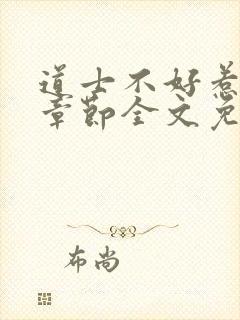 道士不好惹
章节全文免
布尚